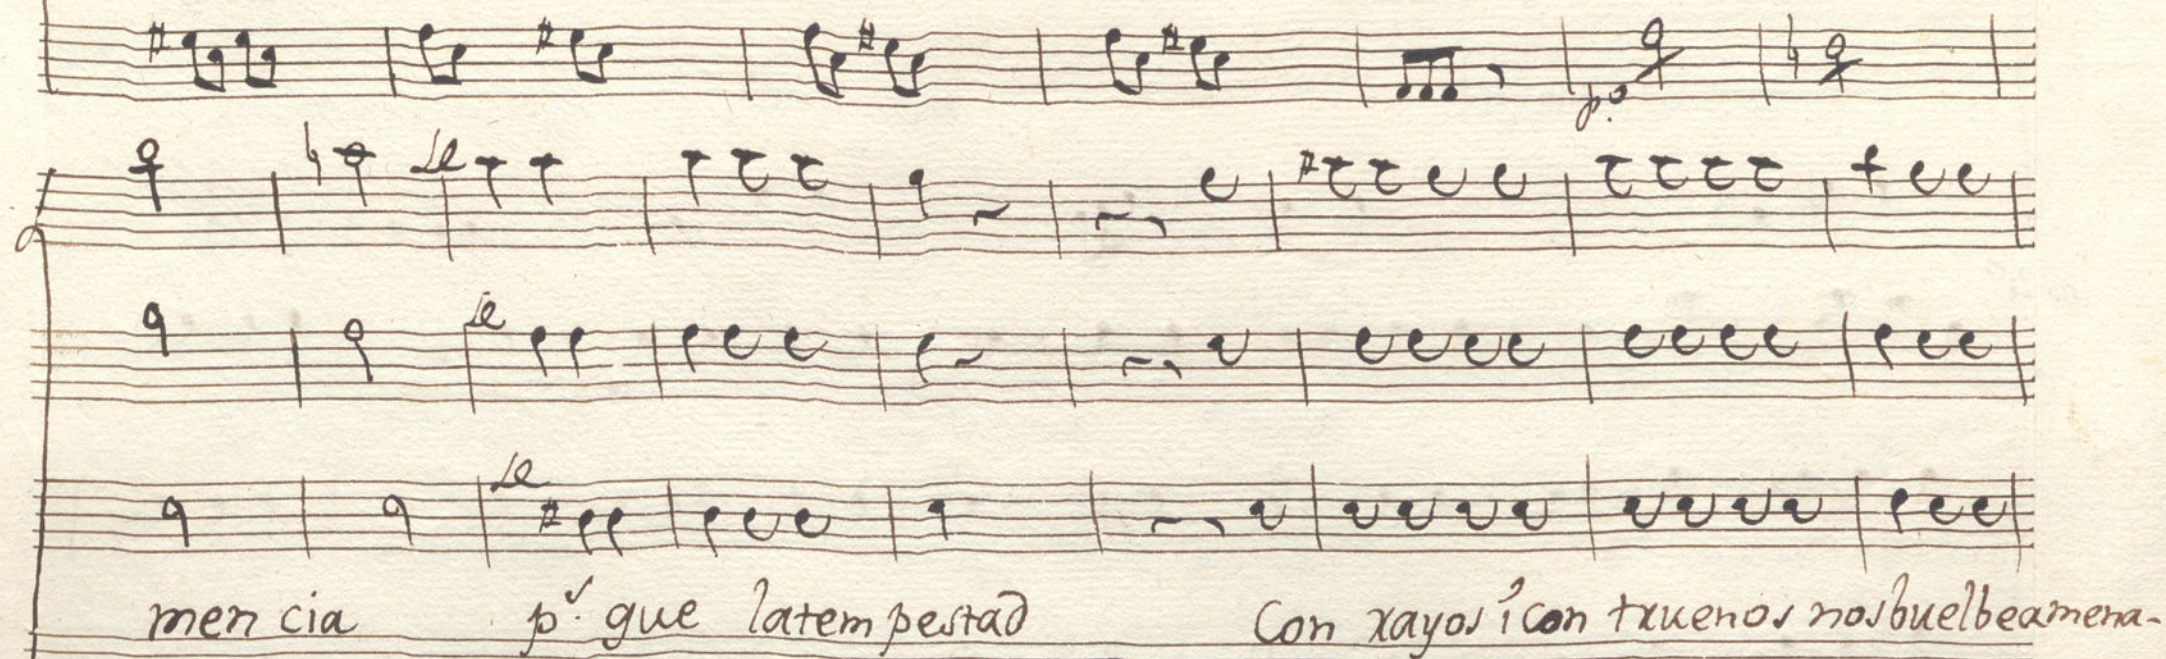 p.º
le
le
le
mencia p.r que latempestad Con rayos i con truenos nos buelbe amena-